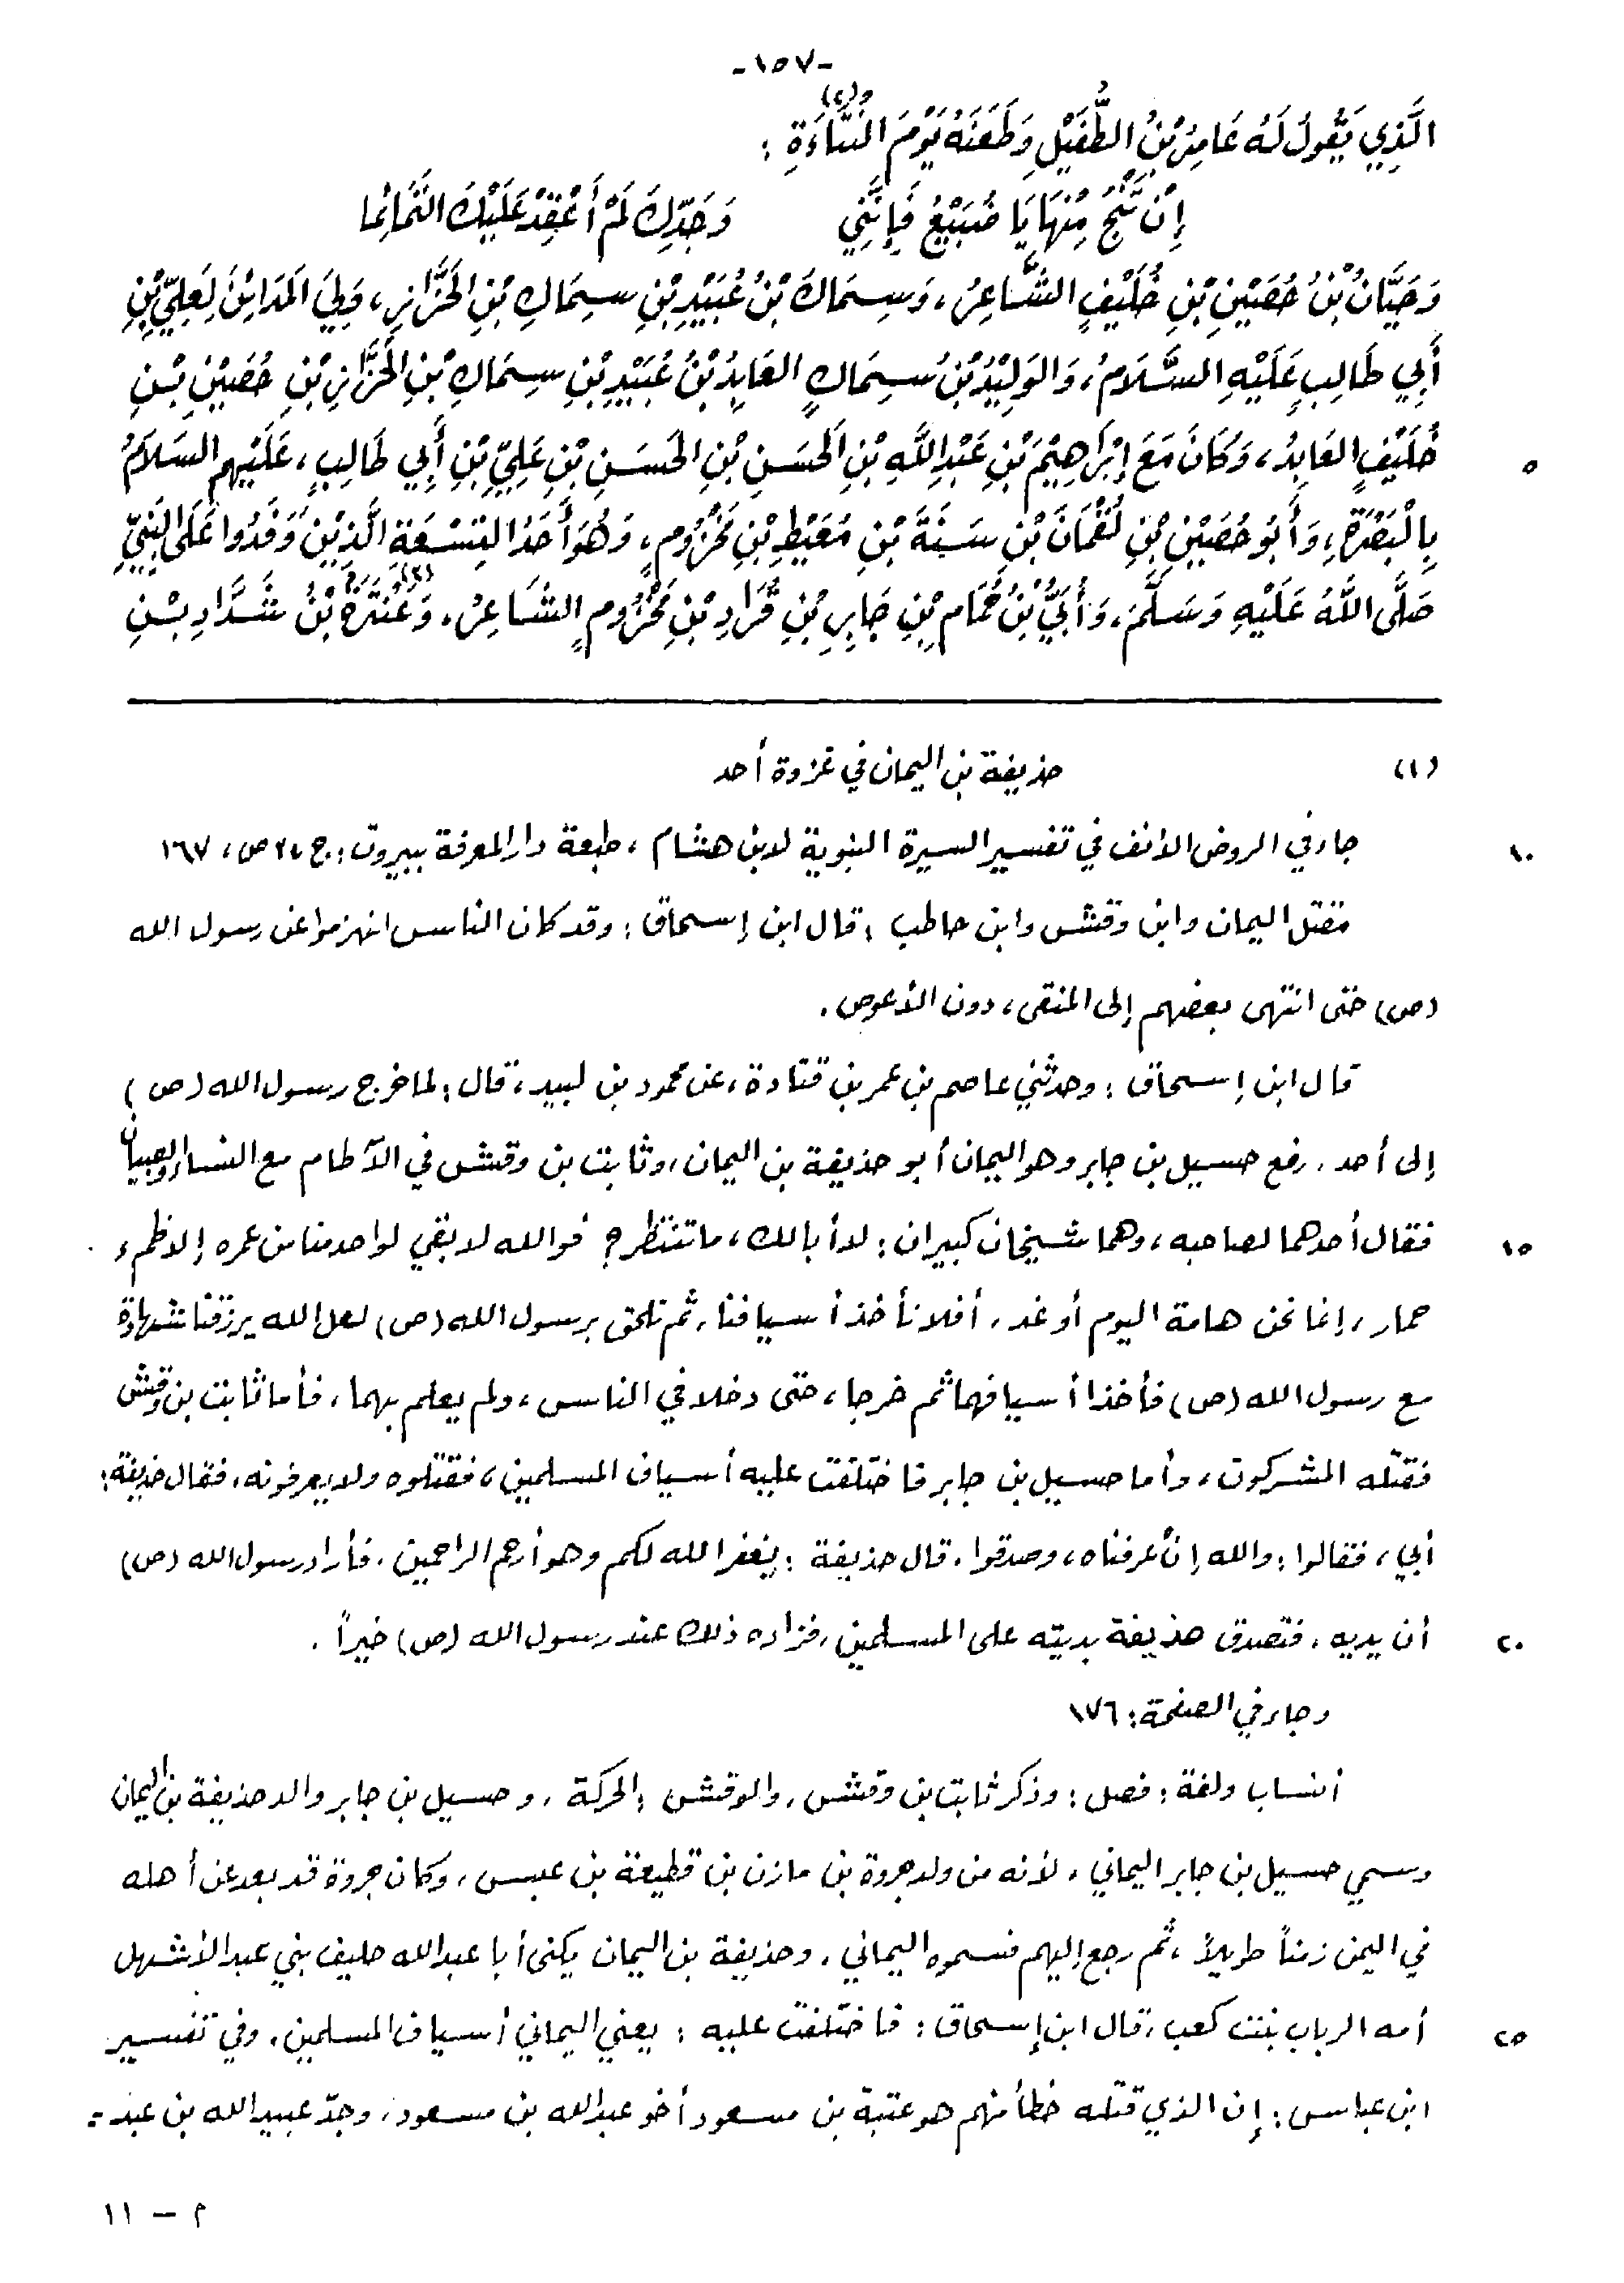 -١٥٧-
الَّذِي يَقُولُ لَهُ عَامِرُ بْنُ الطُّفَيْلِ وَطَعَنَهُ يَوْمَ النَّتَاءَةِ (٢) :
إِنْ تَنْجُ مِنْهَا يَا ضُبَيْعُ فَإِنَّنِي وَجَدِّكَ لَمْ أَعْقِدْ عَلَيْكَ التَّمَائِمَا
وَحَيَّانُ بْنُ حُصَيْنِ بْنِ خُلَيْفٍ الشَّاعِرُ، وَسِمَاكُ بْنُ عُبَيْدِ بْنِ سِمَاكِ بْنِ الْحَزَّازِ، وَلِيَ الْمَدَائِنَ لِعَلِيِّ بْنِ
أَبِي طَالِبٍ عَلَيْهِ السَّلَامُ، وَالوَلِيْدُ بْنُ سِمَاكٍ العَابِدُ بْنُ عُبَيْدِ بْنِ سِمَاكِ بْنِ الْحَزَّازِ بْنِ حُصَيْنِ بْنِ
خُلَيْفٍ العَابِدُ، وَكَانَ مَعَ إِبْرَاهِيْمَ بْنِ عَبْدِ اللَّهِ بْنِ الْحَسَنِ بْنِ الْحَسَنِ بْنِ عَلِيِّ بْنِ أَبِي طَالِبٍ، عَلَيْهِم السَلَامُ ٥
بِالْبَصْرَةِ، وَأَبُو حُصَيْنِ بْنِ لُقْمَانَ بْنِ سَنَةَ بْنِ مُعَيْطِ بْنِ مَخْزُومٍ، وَهُوَ أَحَدُ التِسْعَةِ الَّذِيْنَ وَفَدُوا عَلَى النَبِيِّ
صَلَّى اللَّهُ عَلَيْهِ وَسَلَّمَ، وَأُبَيُّ بْنُ حُمَامِ بْنِ جَابِرِ بْنِ قُرَادِ بْنِ مَخْزُومٍ الشَاعِرُ، وَعَنْتَرَةُ (٣) بْنُ شَدَّادِ بْنِ
(١) حذيفة بن اليمان في غزوة أحد
جاء في الروض الأنف في تفسير السيرة النبوية لابن هشام، طبعة دار المعرفة ببيروت: ج، ٣ ص، ١٦٧ ١٠
مقتل اليمان وابن وقش وابن حاطب : قال ابن إسحاق: وقد كان الناس انهزموا عن رسول الله
(ص) حتى انتهى بعضهم إلى المنقى، دون الأعوص.
قال ابن إسحاق : وحدثني عاصم بن عمر بن قتادة، عن محمود بن لبيد، قال: لما خرج رسول الله (ص )
إلى أحد، رفع حسيل بن جابر وهو اليمان أبو حذيفة بن اليمان، وثابت بن وقش في الآطام مع النساء والصبيان
فقال أحدهما لصاحبه، وهما شيخان كبيران: لا أبا لك، ما تنتظر؟ فوالله لا بقي لواحد منا من عمره إلا ظمء ١٥
حمار، إنما نحن هامة اليوم أو غد، أفلا نأخذ أسيافنا، ثم نلحق برسول الله (ص) لعل الله يرزقنا شهادة
مع رسول الله (ص) فأخذا أسيافهما ثم خرجا، حتى دخلا في الناس، ولم يعلم بهما، فأما ثابت بن وقش
فقتله المشركون، وأما حسيل بن جابر فاختلفت عليه أسياف المسلمين، فقتلوه ولا يعرفونه، فقال حذيفة:
أبي، فقالوا: والله إن عرفناه، وصدقوا، قال حذيفة : يغفر الله لكم وهو أرحم الراحمين، فأراد رسول الله (ص)
أن يديه، فتصدق حذيفة بديته على المسلمين، فزاده ذلك عند رسول الله (ص) خيراً . ٢٠
وجاء في الصفحة: ١٧٦
أنساب ولغة : فصل : وذكر ثابت بن وقش، والوقش : الحركة، وحسيل بن جابر والد حذيفة بن اليمان
وسمي حسيل بن جابر اليماني، لأنه من ولد جروة بن مازن بن قطيعة بن عبس، وكان جروة قد بعد عن أهله
في اليمن زمناً طويلاً، ثم رجع إليهم فسموه اليماني، وحذيفة بن اليمان يكنى أبا عبد الله حليف بني عبد الأشهل
أمه الرباب بنت كعب، قال ابن إسحاق : فاختلفت عليه : يعني اليماني أسياف المسلمين، وفي تفسير ٢٥
ابن عباس : إن الذي قتله خطأ منهم هو عتبة بن مسعود أخو عبد الله بن مسعود، وجدّ عبيد الله بن عبد =
م - ١١